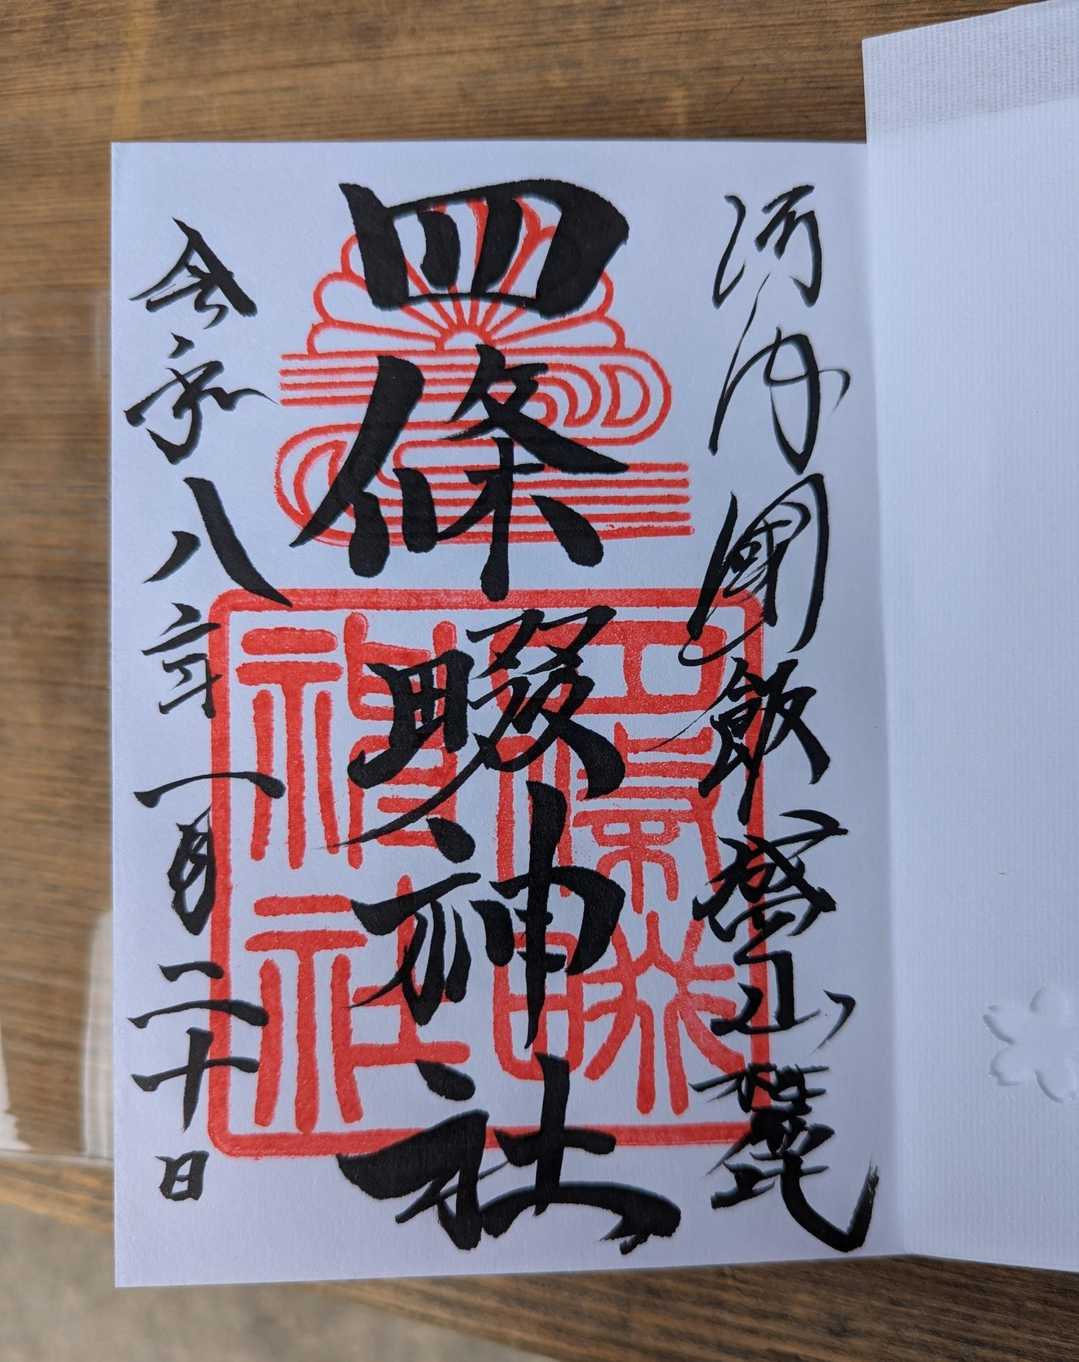 河内國飯盛山麓
四條畷神社
四條畷神社
令和八年一月二十日